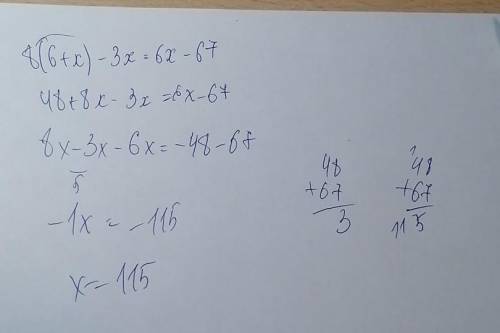 8(6+x)-3x=6x-67
48+8x-3x=6x-67
8x-3x-6x=-48-67
5
-1x=-115
x=-115
48
+67
3
1
48
+67
115